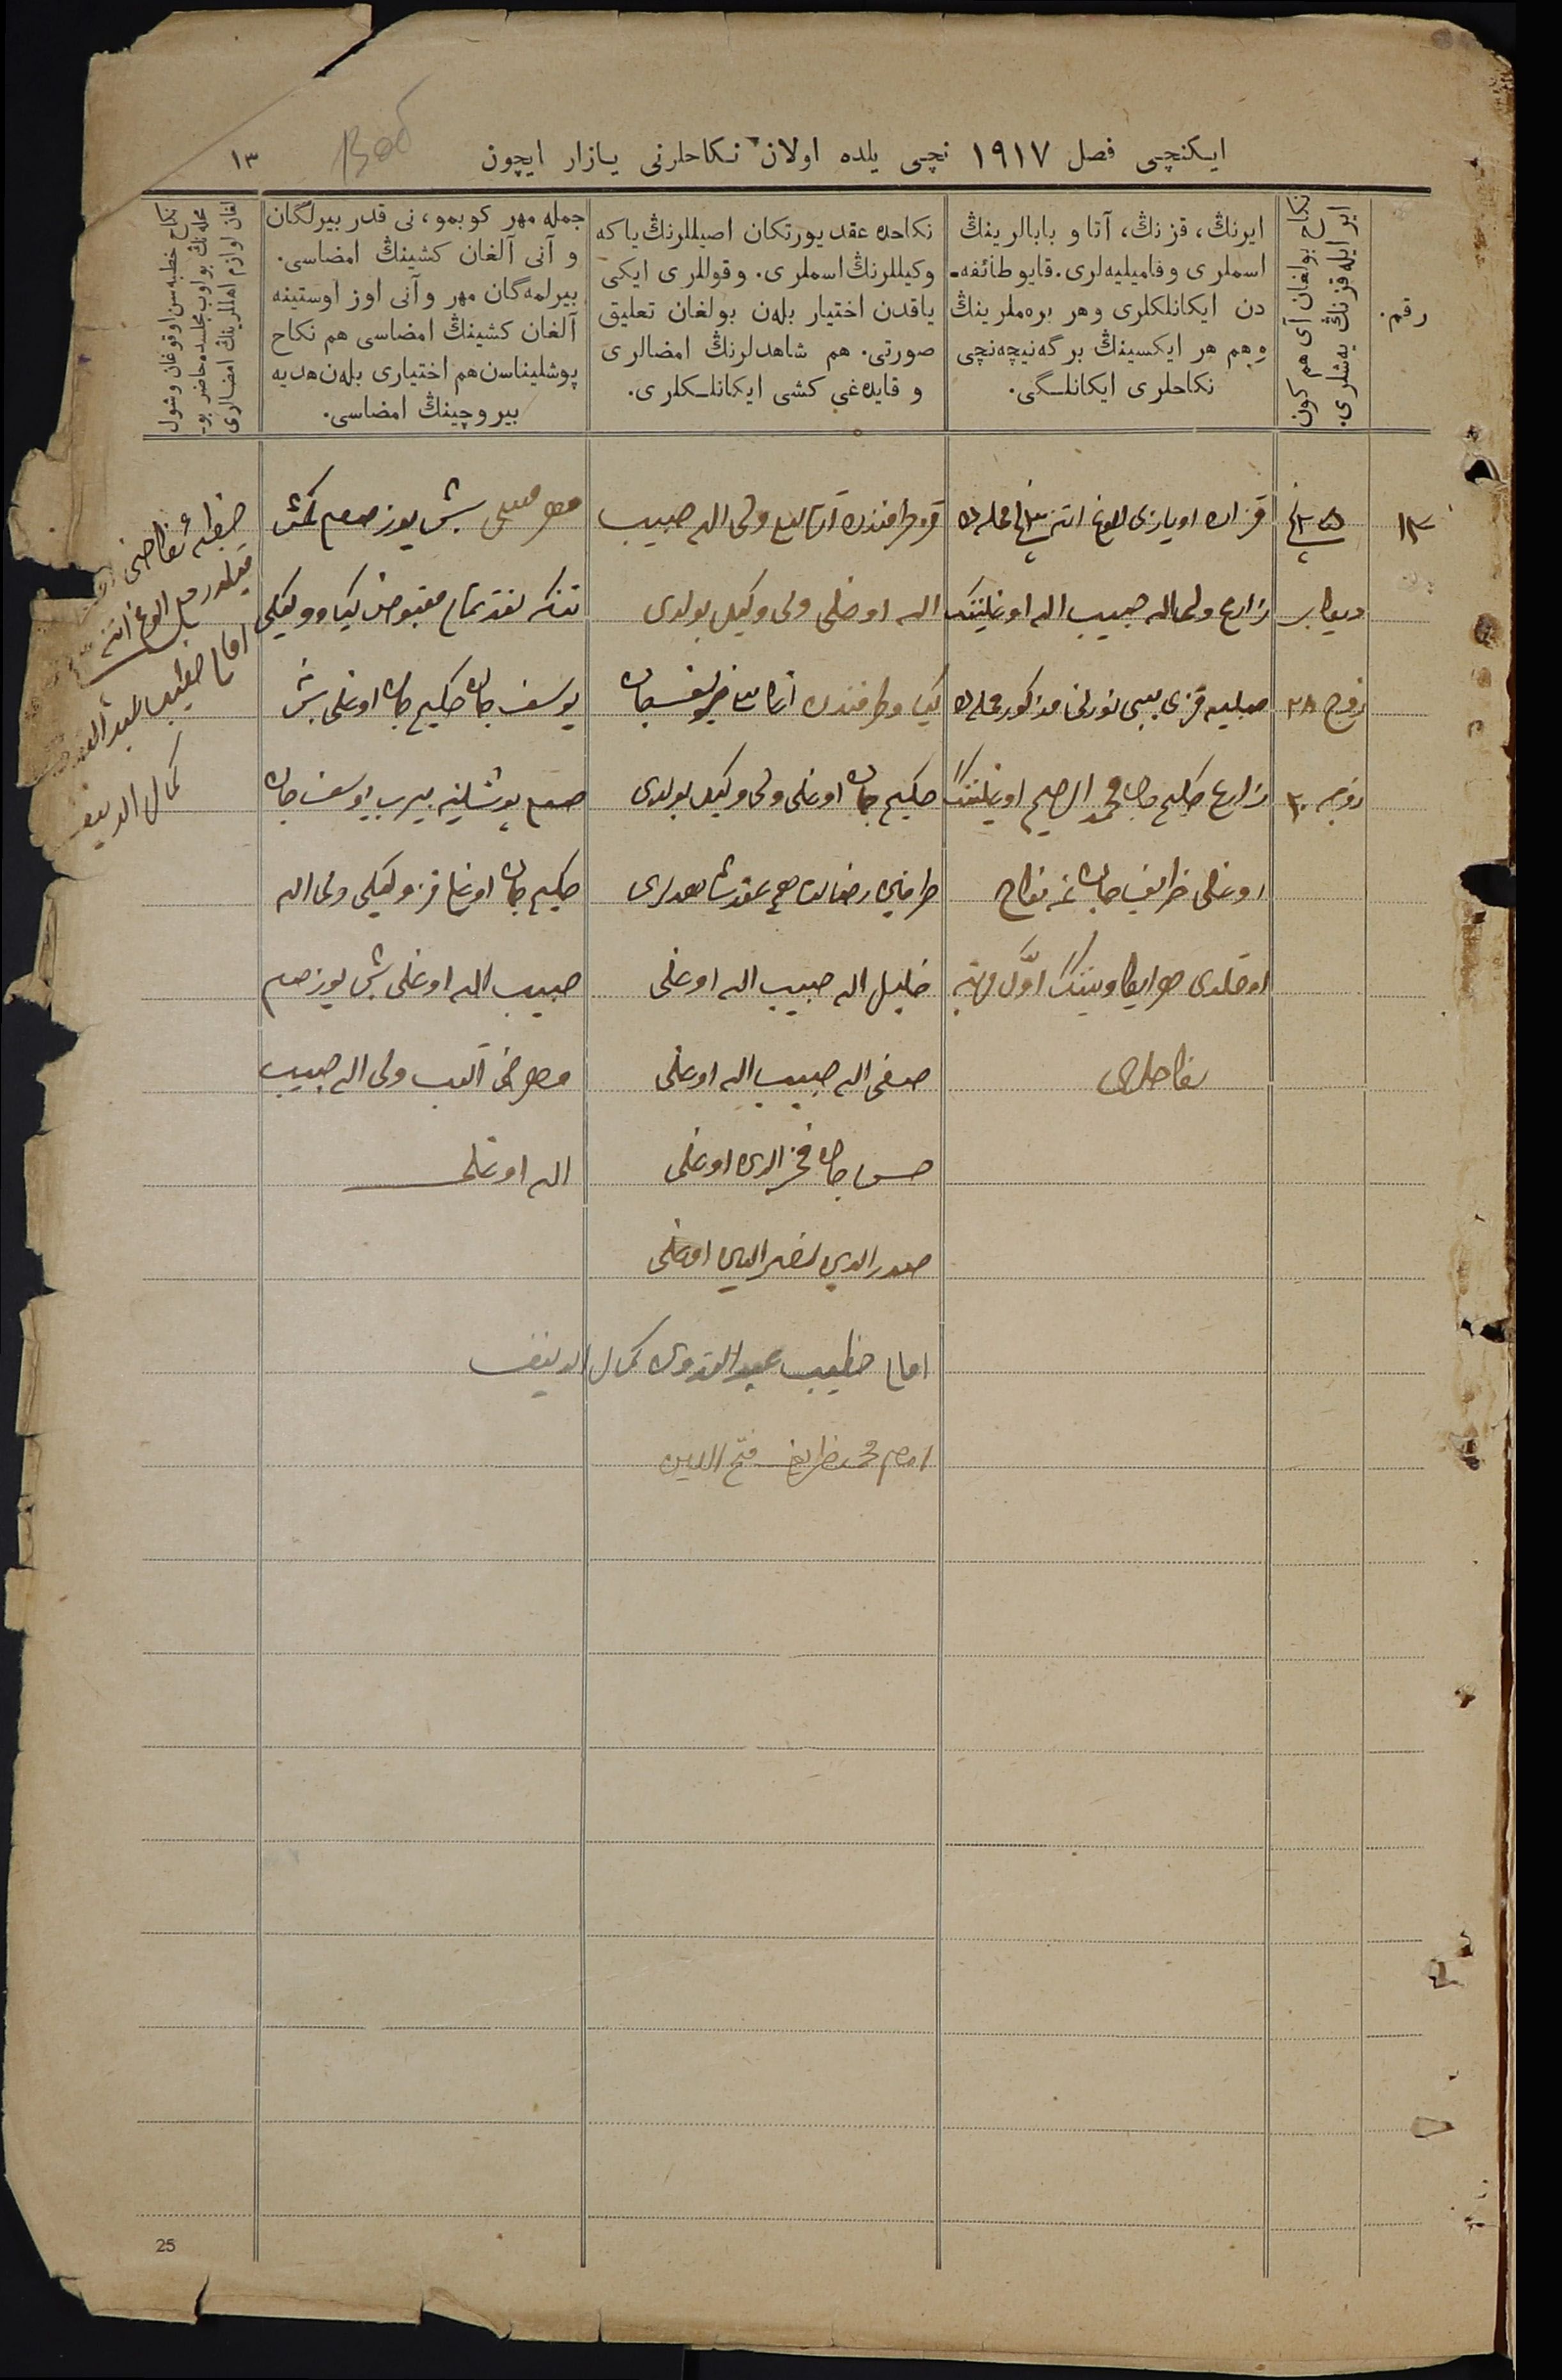 ایکنچی فصل ١٩١٧ نچی یلده اولان نکاحلرنی یازار ایچون
١٣
رقم.
نکاح بولغان آی هم کون
ایر ایله قزنڭ یه‌شلری.
ایرنڭ، قزنڭ، آتا و بابالرینڭ
اسملری و فامیلیه‌لری. قایو طائفه‌ـ
دن ایکانلکلری وهر بره‌ملرینڭ
وهم هر ایکسینڭ برگه‌نیچه‌نچی
نکاحلری ایکانلـگی.
نکاحده عقد یورتکان اصیللرنڭ یاکه
وکیللرنڭ اسملری. وقوللری ایکی
یاقدن اختیار بله‌ن بولغان تعلیق
صورتی. هم شاهدلرنڭ امضالری
و قایده‌غی کشی ایکانلـکلری.
جمله مهر کوبمو، نی قدر بیرلگان
و آنی آلغان کشینڭ امضاسی.
بیرلمه‌گان مهر و آنی اوز اوستینه
آلغان کشینڭ امضاسی هم نکاح
پوشلیناسن هم اختیاری بله‌ن هدیه
بیروچینڭ امضاسی.
نکاح خطبه‌سن اوقوغان وشول
محله‌نڭ بولوب مجلسده حاضر بو‌ـ
لغان اوازم اهللرینڭ امضالری
١٣
٢٥
دیکابر
زوج ٢٨
زوجه ٢٠
قزان اویازی الوغ اتنه محله‌ده
زارع ولی الله حبیب الله اوغلیننڭ
قزی بیبی نورنی مذکور محله‌ده
زارع حکیم جان محمد الرحیم اوغلیننڭ
اوغلی ظریف جان غه نکاح
اوقلدی هر ایکاوینینڭ اوّل مرتبه
نکاحلری
قز طرفندن آتاسی ولی الله حبیب
الله اوغلی ولی وکیل بولدی
کیاو طرفندن
حکیم جان اوغلی ولی وکیل بولدی
طرفین رضالقده عقد شاهدلری
خلیل الله حبیب الله اوغلی
صفی الله حبیب الله اوغلی
حسن جان فخر الدین اوغلی
صدر الدین نصر الدین اوغلی
امام خطیب عبد القدوس کمال الدینف
امام محمد ظریف فتح الدین
مهر مسمی بش یوز صوم کمش
تنکه نقد تمام مقبوض کیاو وکیلی
یوسف جان حکیم جان اوغلی بش
صوم پوشلینه بیرب یوسف جان
حکیم جان اوغلی قز وکیلی ولی الله
حبیب الله اوغلی بش یوز صوم
مهرنی آلب ولی الله حبیب
الله اوغلی
خطبهٔ نکاحنی
الوغ اتنه
امام خطیب عبد القدوس
کمال الدینف
25